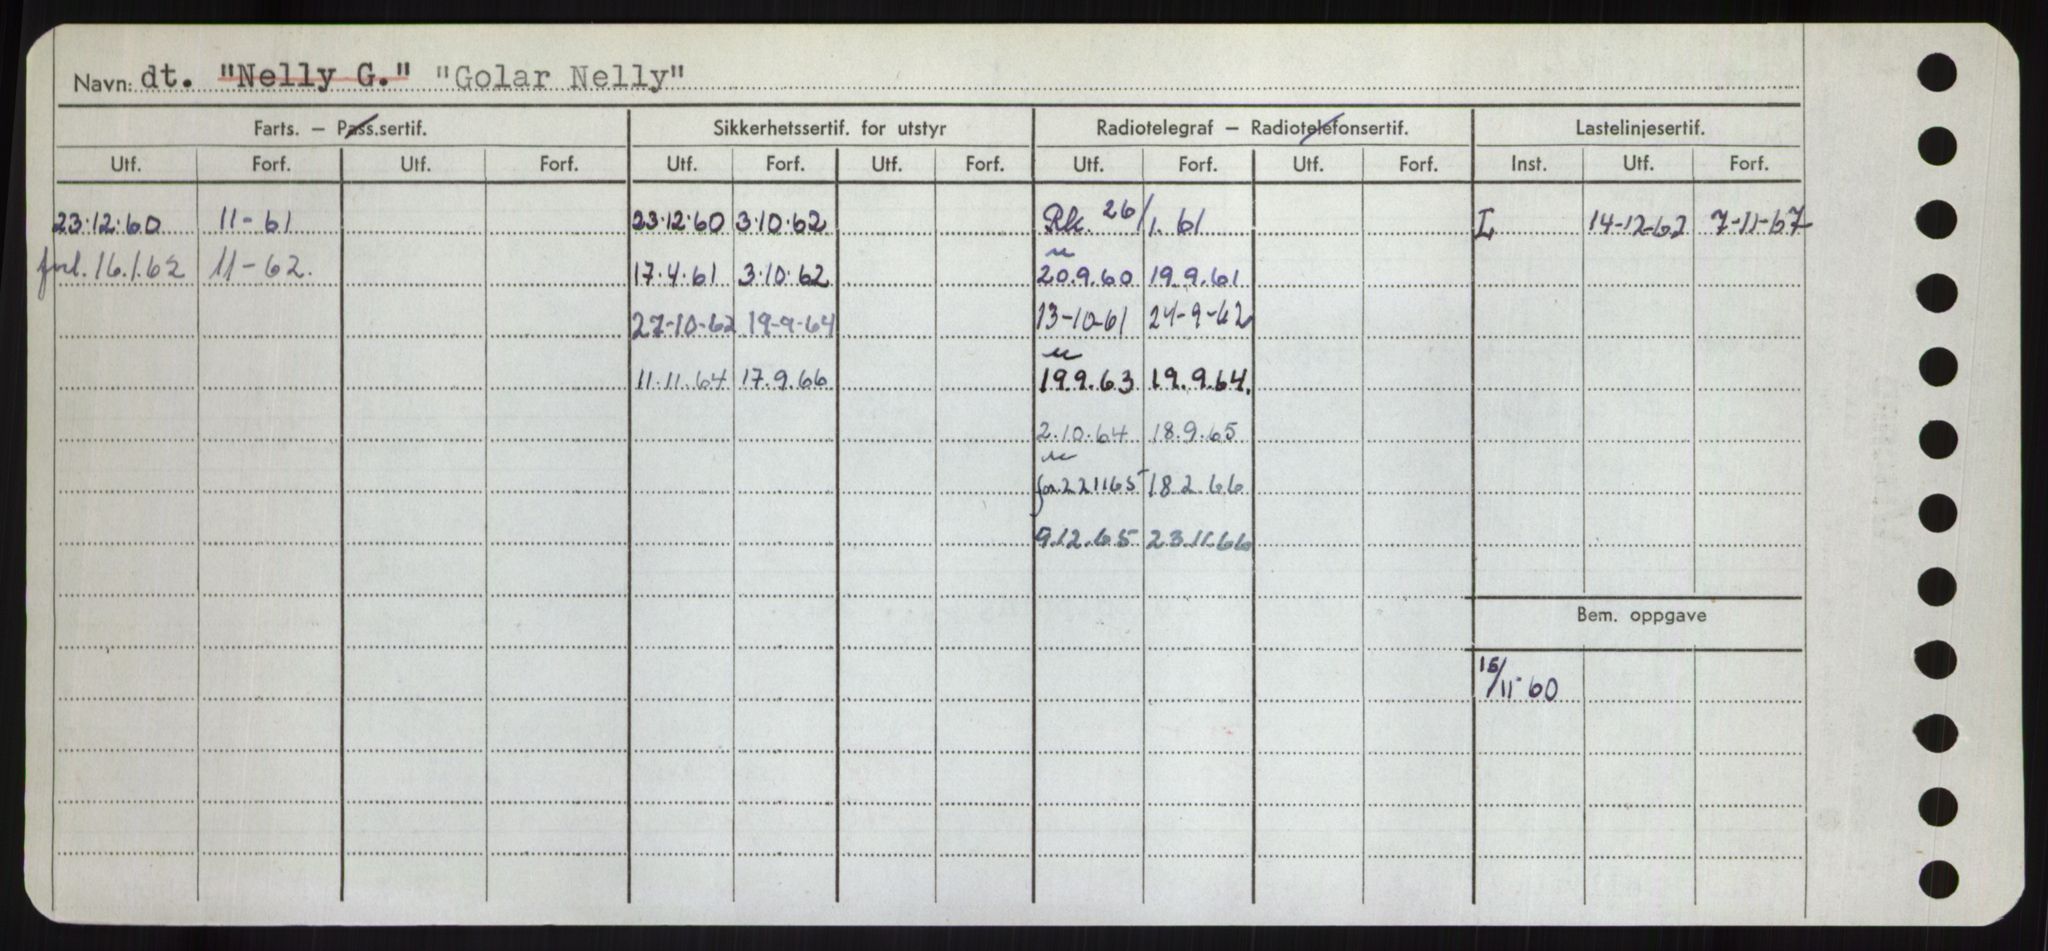 Navn: dt. "Nelly G." "Golar Nelly"
Farts. – Pass.sertif. Sikkerhetssertif. for utstyr Radiotelegraf – Radiotelefonsertif. Lastelinjesertif.
Utf. Forf. Utf. Forf. Utf. Forf. Utf. Forf. Utf. Forf. Utf. Forf. Inst. Utf. Forf.
23.12.60 11-61 23.12.60 3.10.62 Rk. 26/1.61 I 14-12-62 7-11-67
forl. 16.1.62 11-62. 17.4.61 3.10.62 20.9.60 19.9.61
27-10-62 19-9-64 13-10-61 24-9-62
11.11.64 17.9.66 19.9.63 19.9.64.
2.10.64 18.9.65
for. 221165 18.2.66
9.12.65 23.11.66
Bem. oppgave
15/11-60